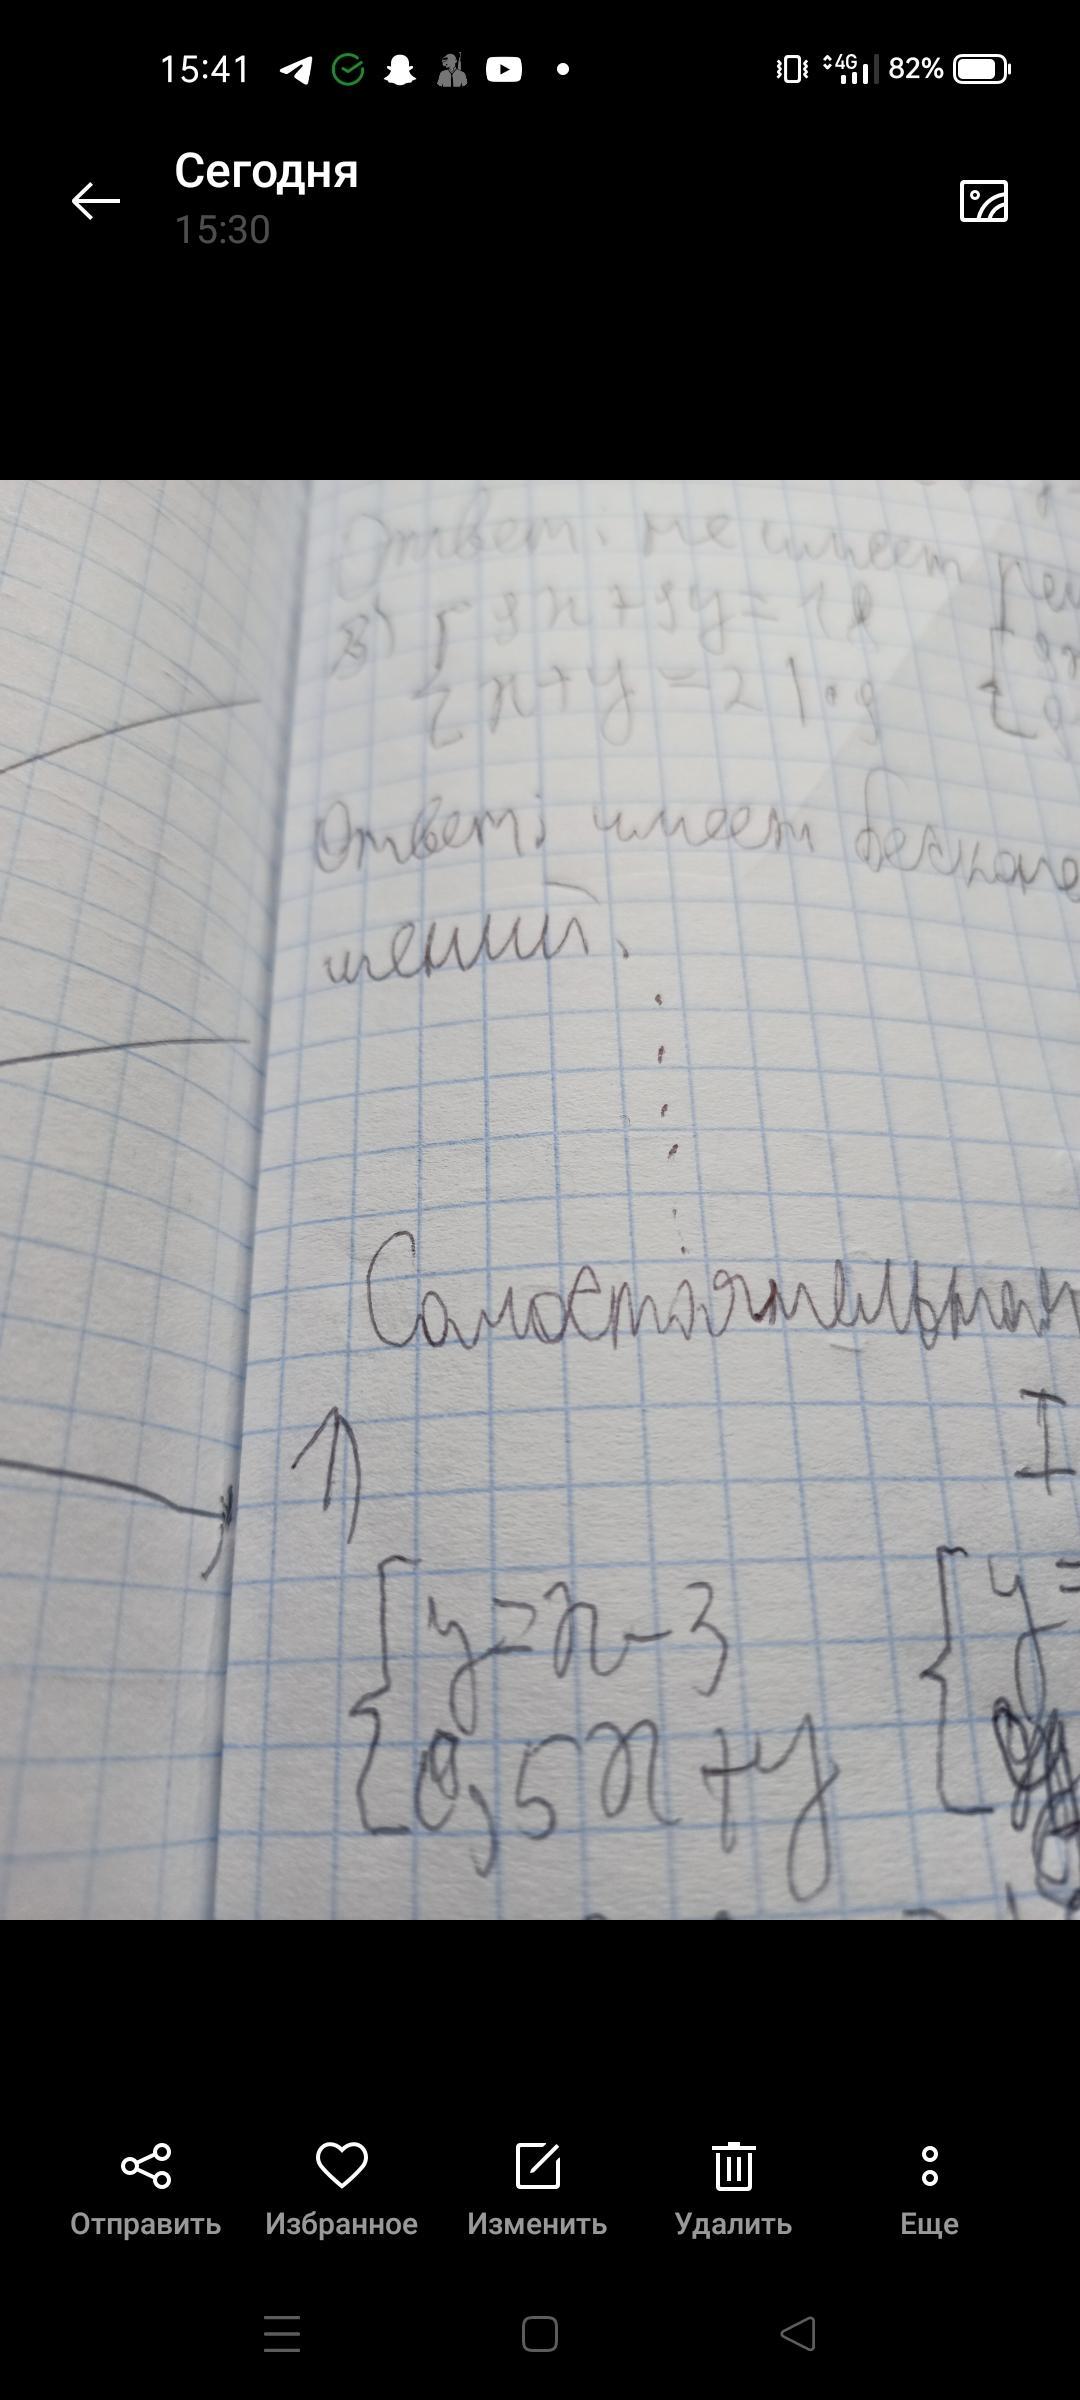 15:41 4G 82%
Сегодня
15:30
Ответ: не имеет
в) { 9x+9y=18
{ x+y=2 |·9
Ответ: имеет
шений.
Самостоятельная
I
{ y=x-3 { y=
{ 0,5x+y
Отправить Избранное Изменить Удалить Еще